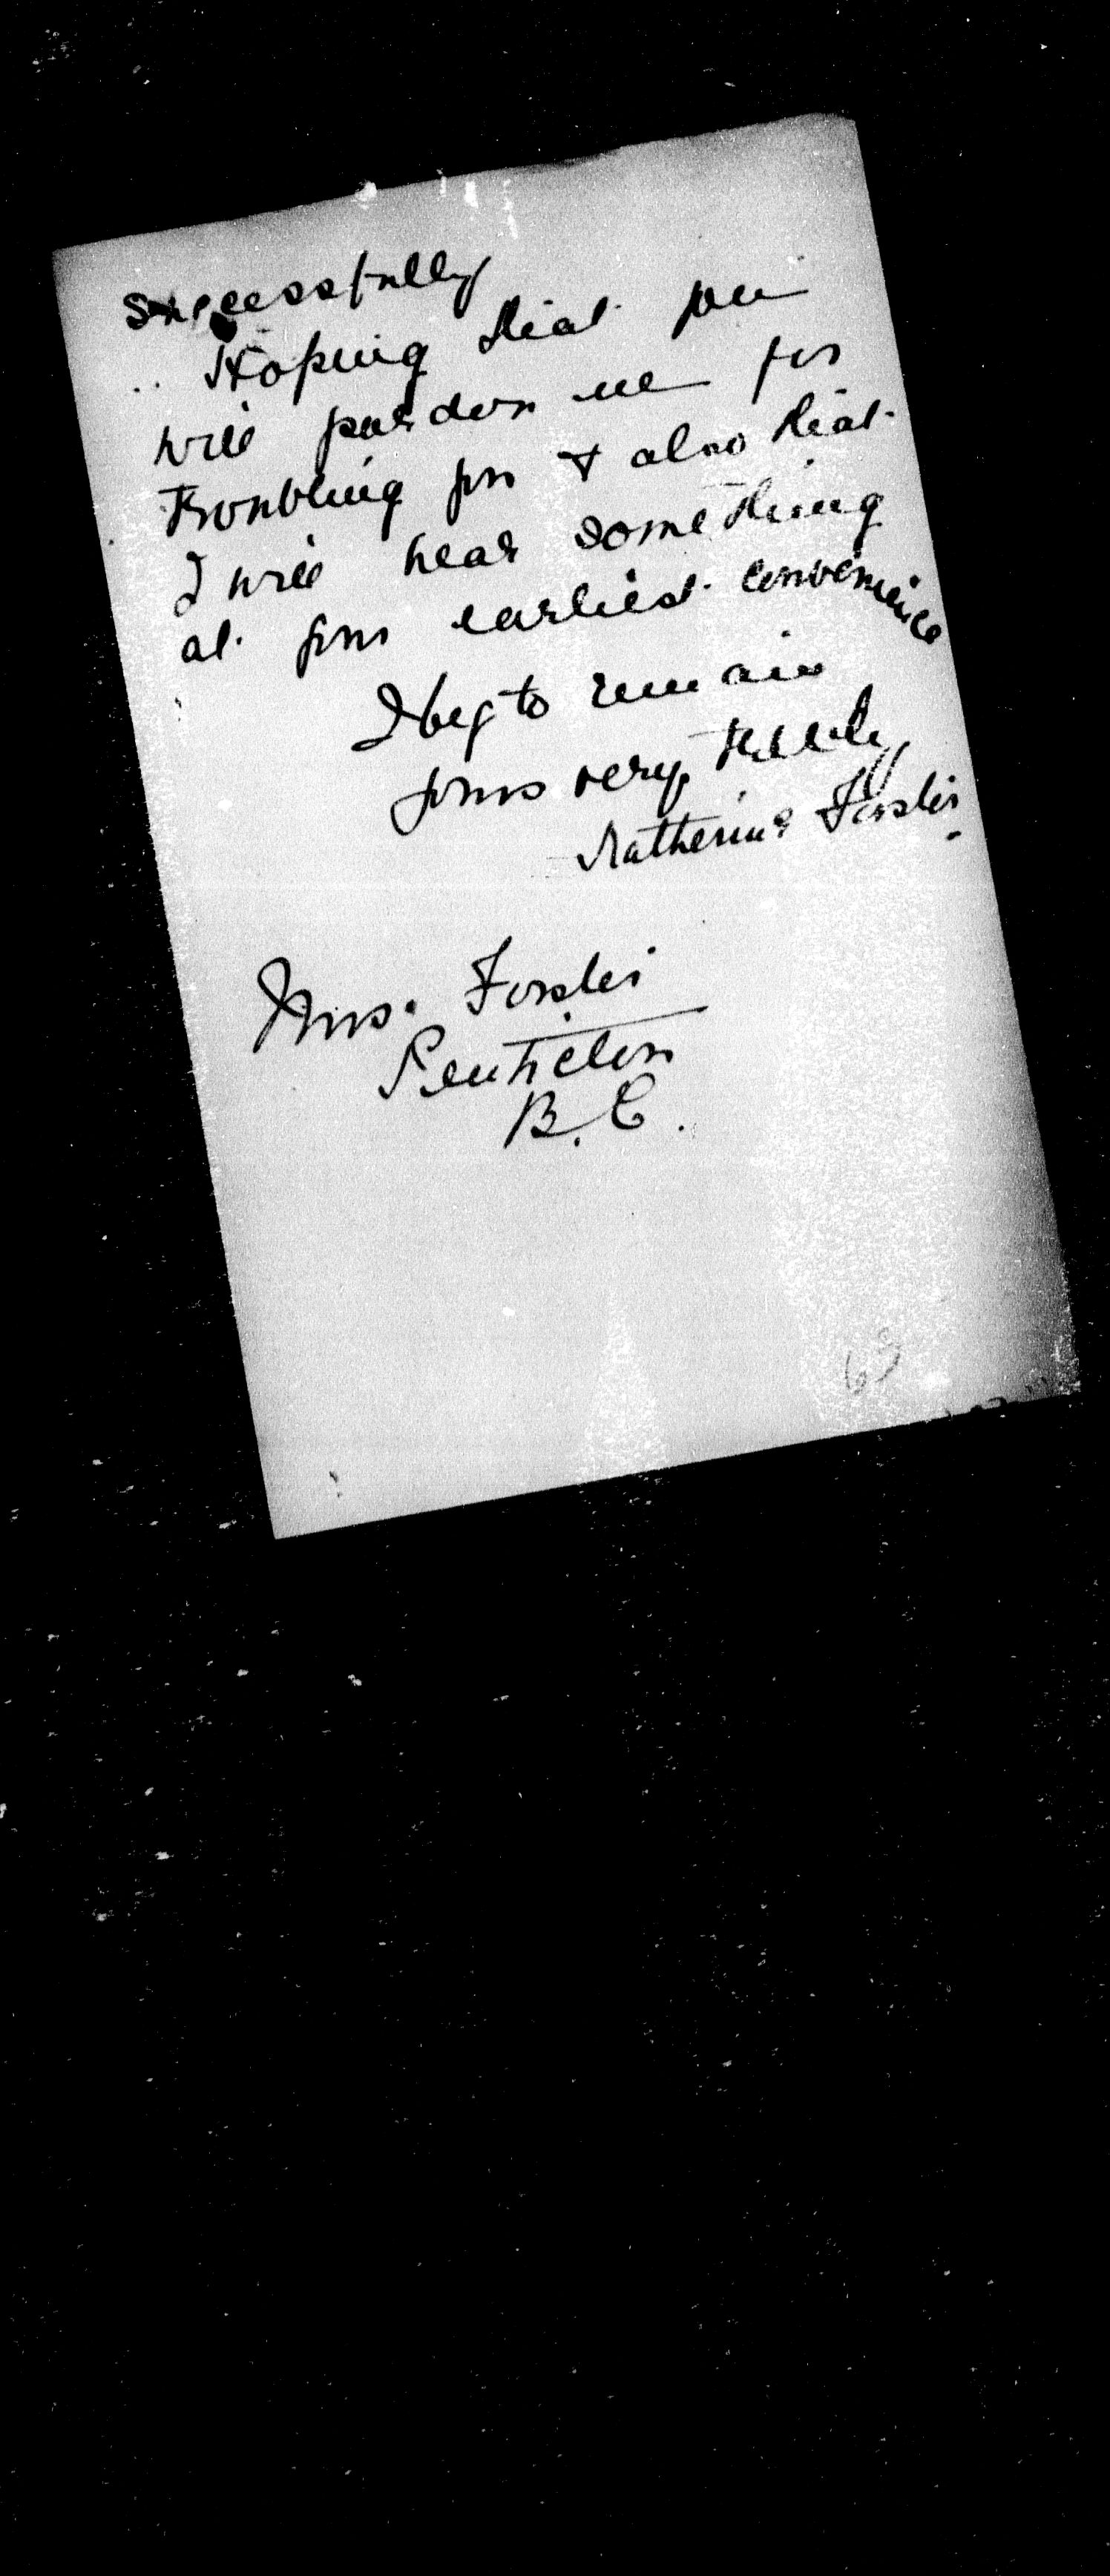 successfully
Hoping that you
will pardon me for
Troubling you & also that
I will hear something
at your earliest convenience
I beg to remain
yours very truly
Katherine Forster
Mrs. Forster
Penticton
B.C.
63